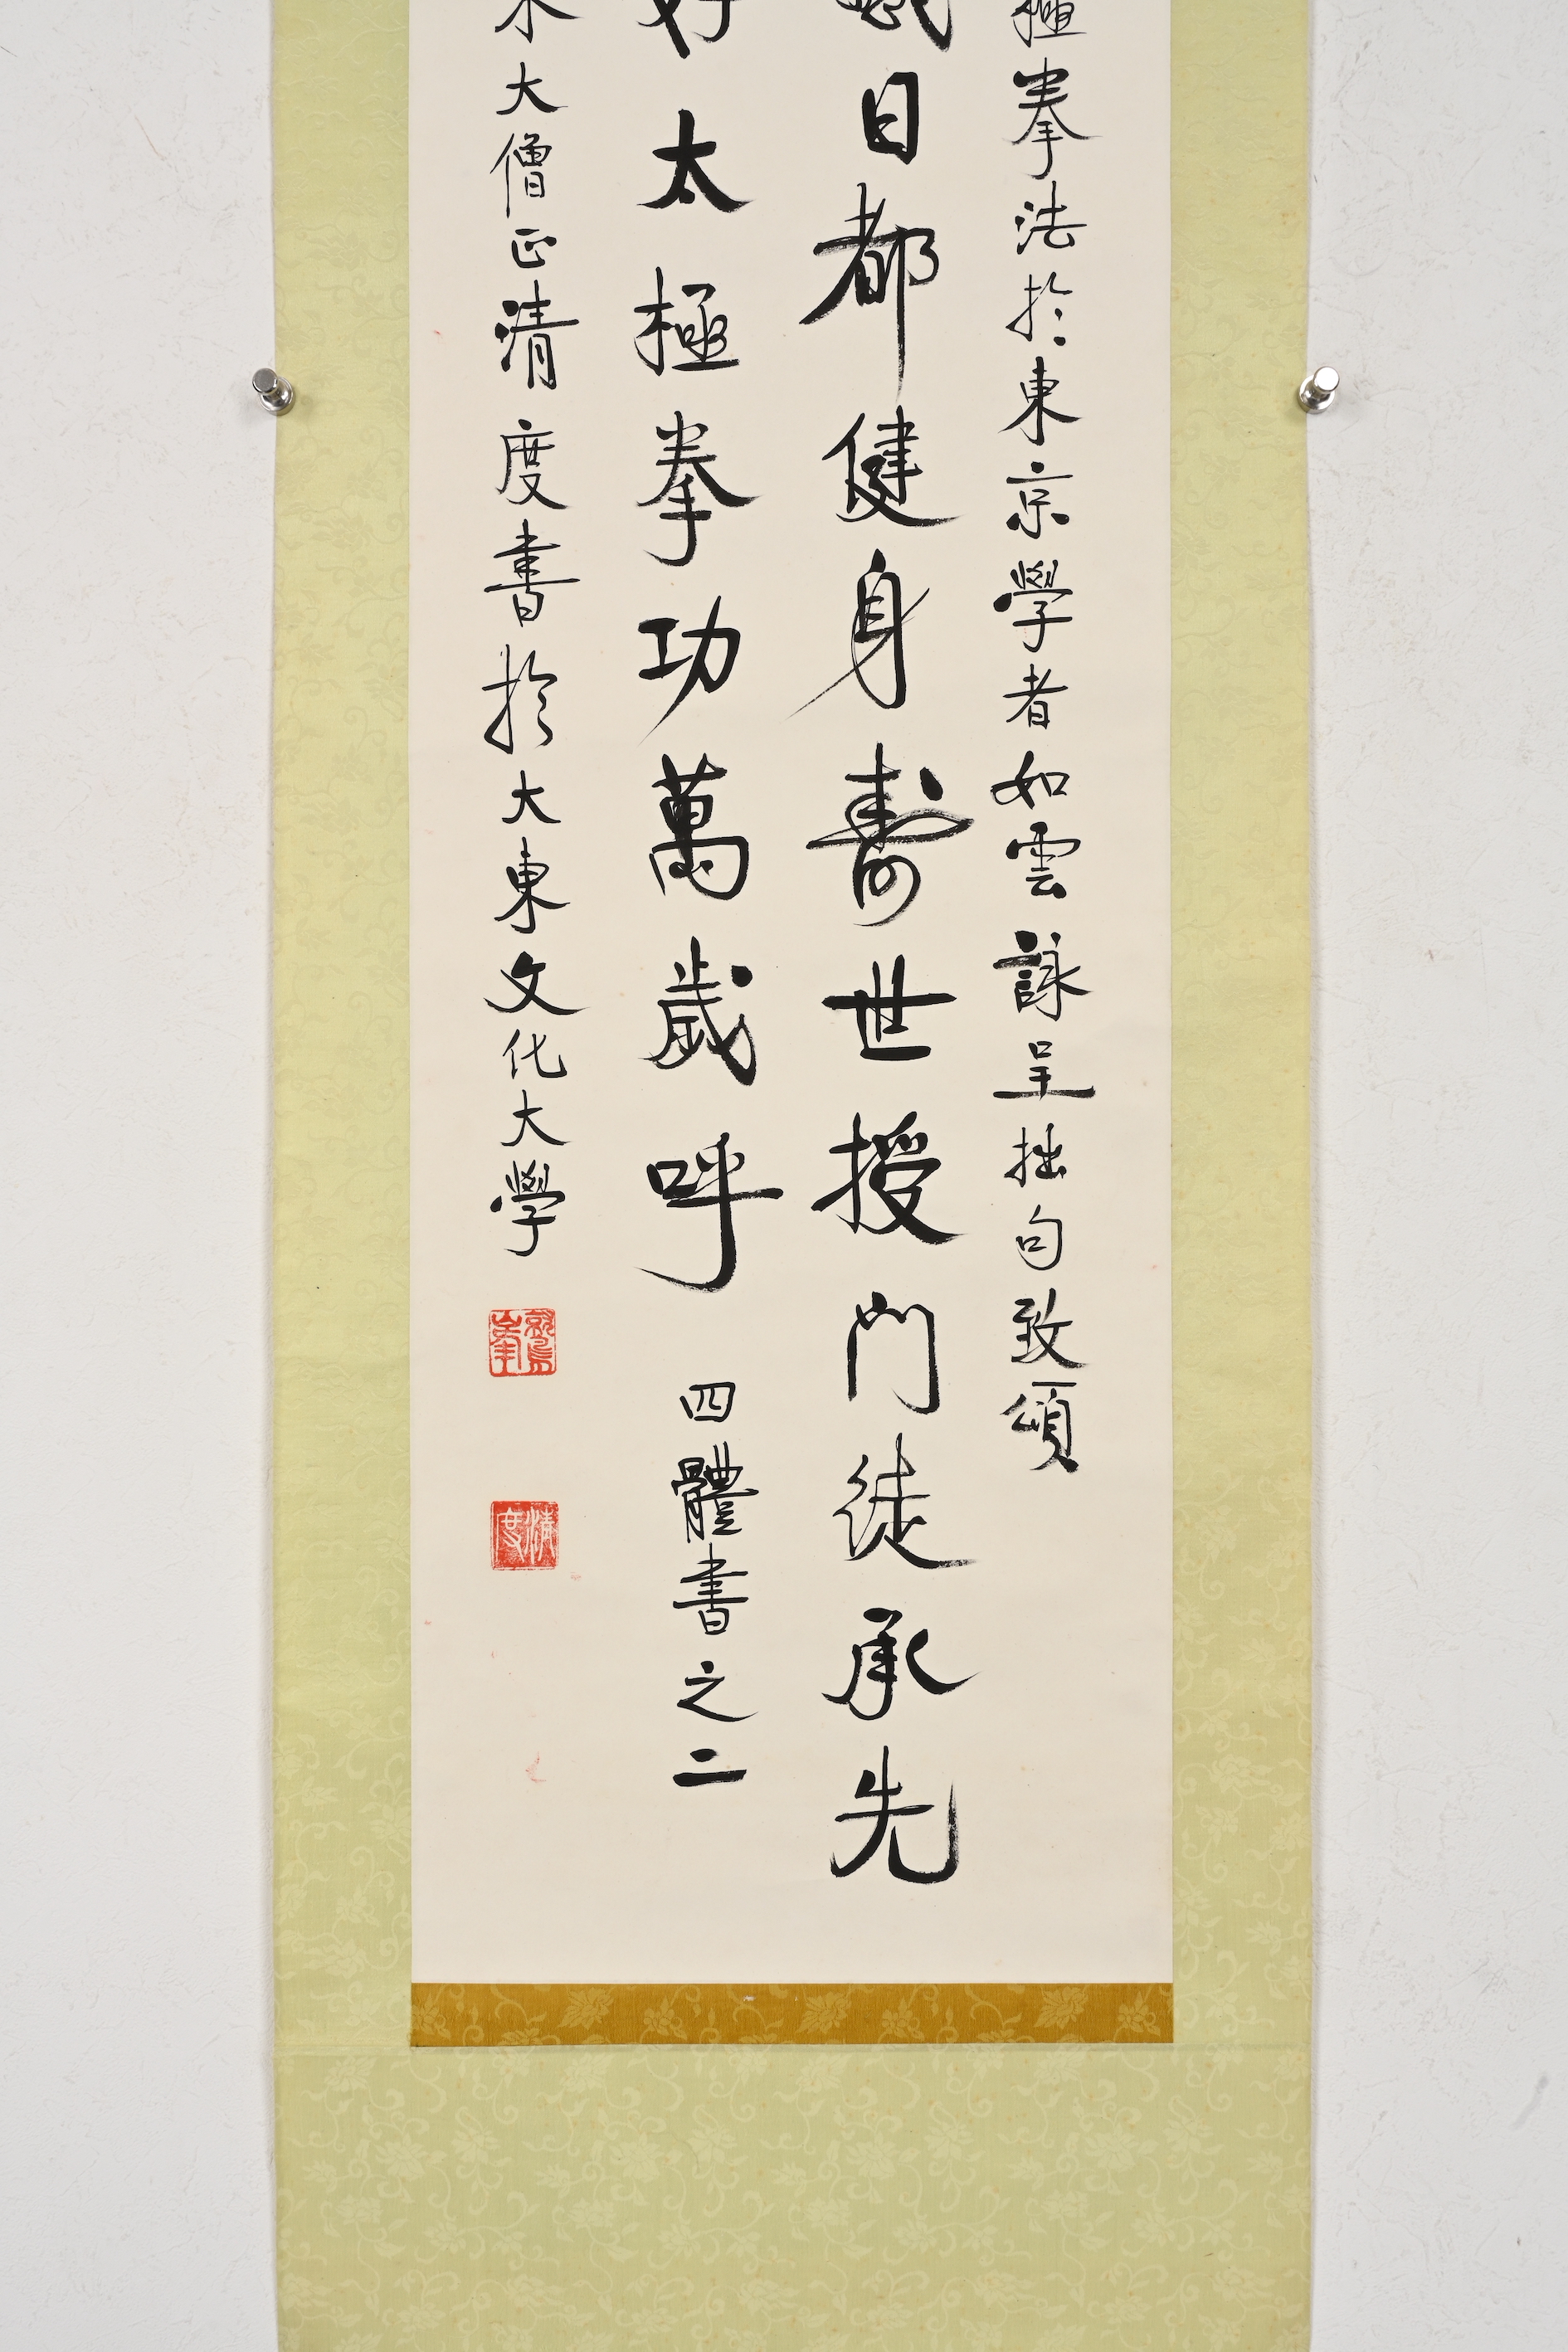 極拳法於東京學者如雲詠呈拙句致頌
日都健身壽世授門徒承先
好太極拳功萬歲呼
四體書之二
大僧正清度書於大東文化大學
鷲峯
清度